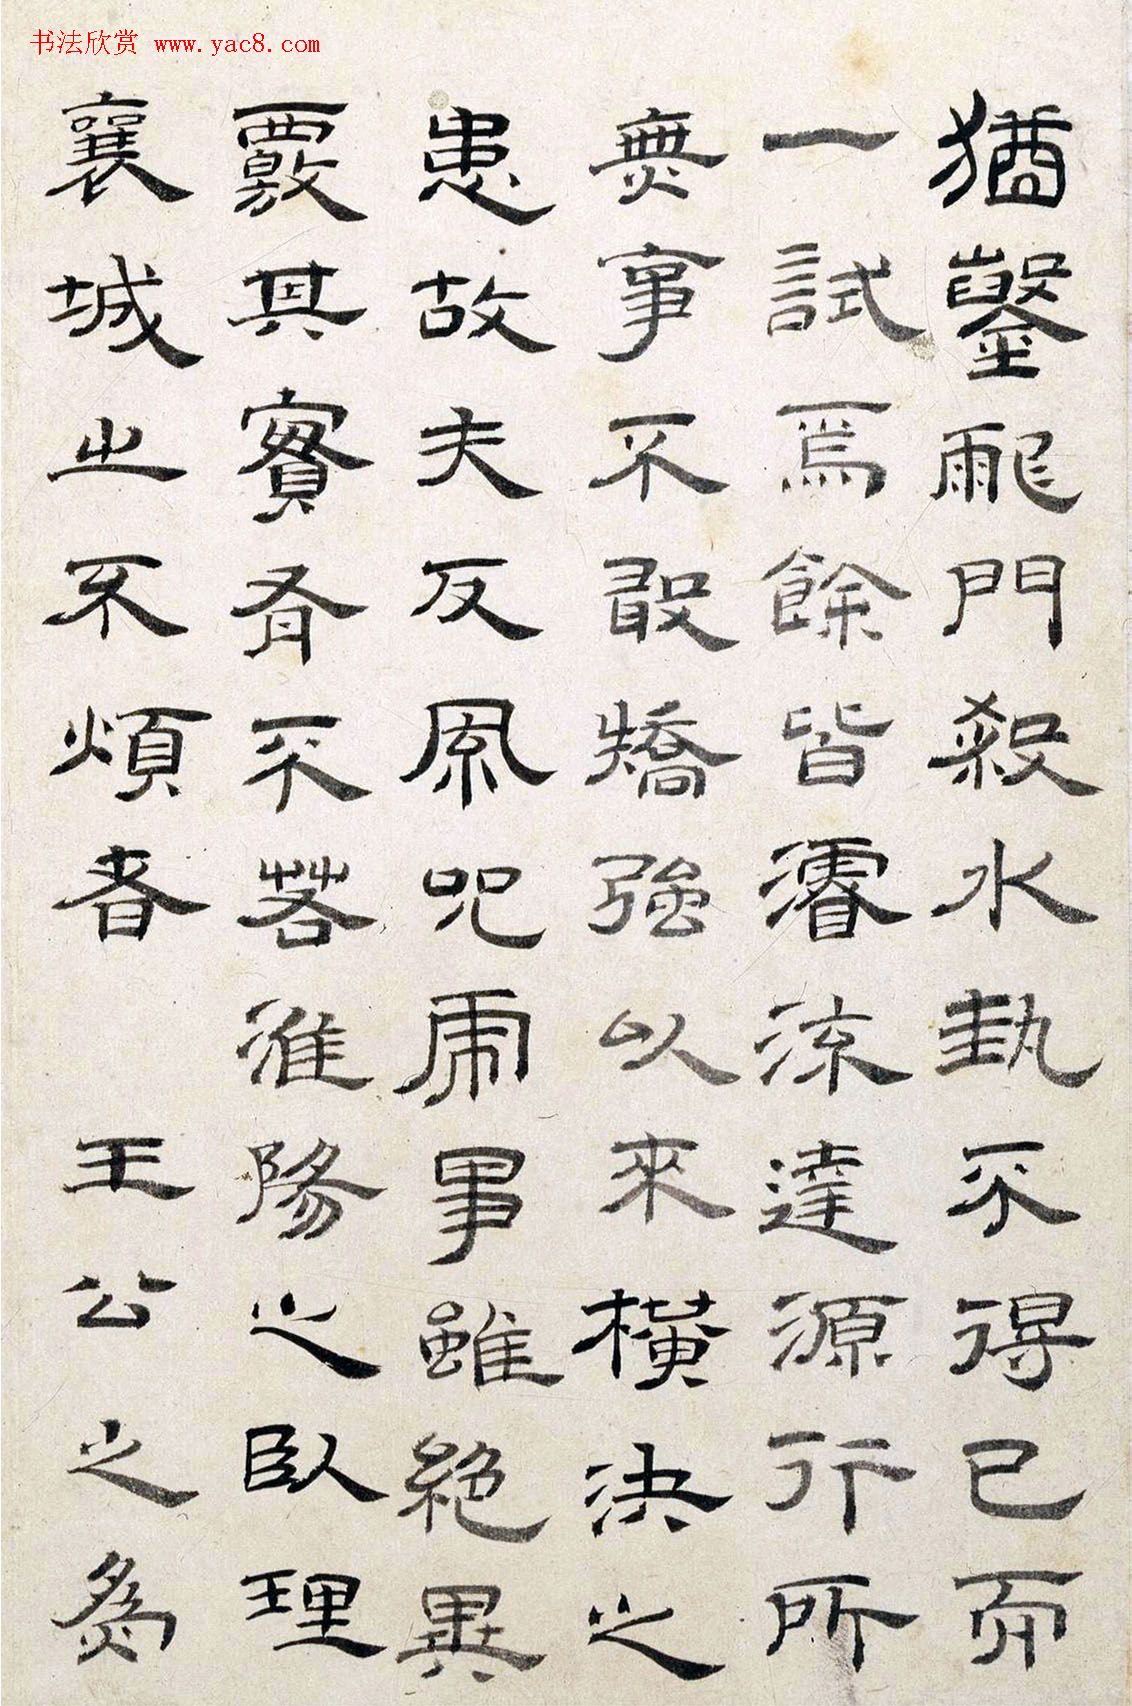 书法欣赏 www.yac8.com
猶鑿龍門殺水埶不得已而
一試焉餘皆濬流達源行所
無事不敢矯強以來橫決之
患故夫反風咒虎事雖絕異
覈其實有不若淮陽之臥理
襄城之不煩者 王公之為